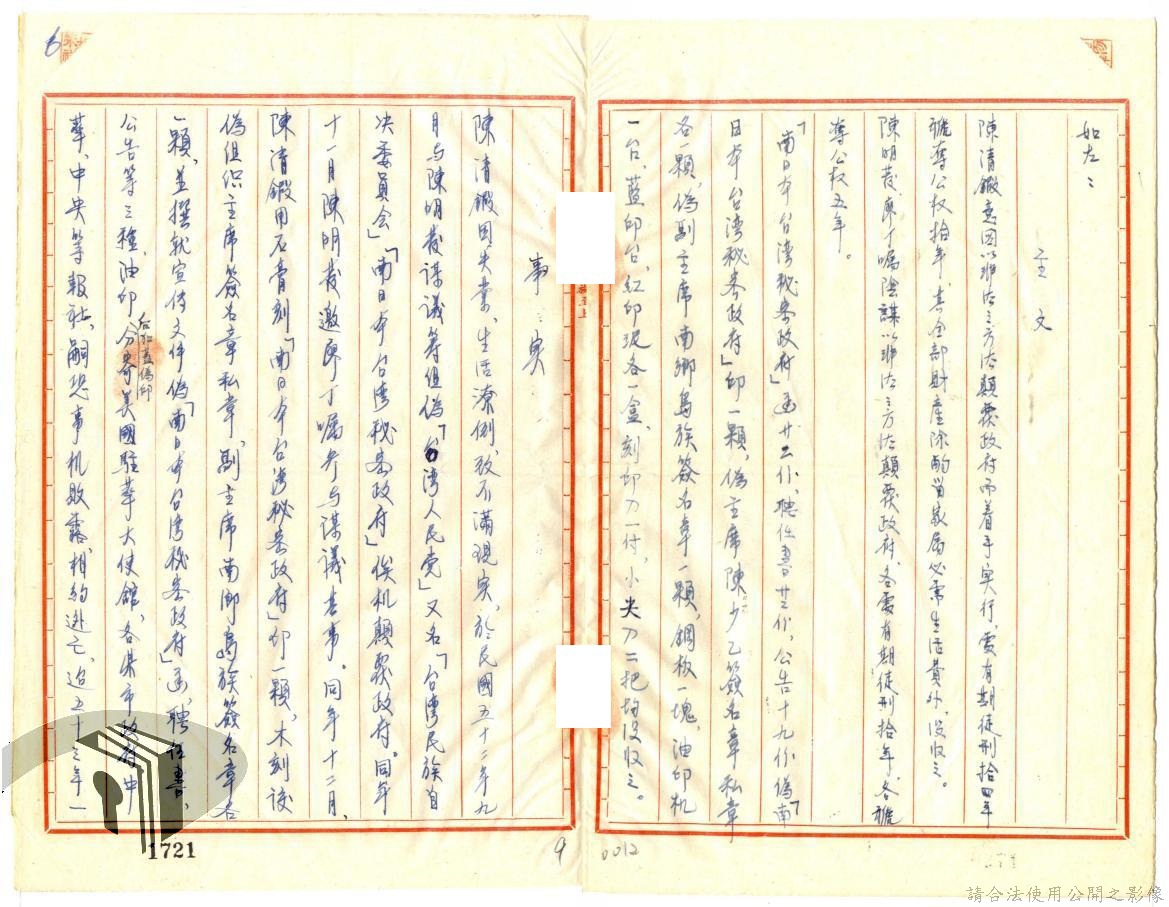 如左:
主文
陳清鍛意圖以非法之方法顛覆政府而着手实行,處有期徒刑拾四年
褫奪公权拾年,其全部財產除酌留家屬必需生活費外,没收之。
陳明發、廖丁嘱陰謀以非法之方法顛覆政府,各處有期徒刑拾年,各褫
奪公权五年。
「南日本台湾秘密政府」函廿二件、聘任書廿三份、公告十九份、偽「南
日本台湾秘密政府」印一顆,偽主席陳少乙簽名章私章
各一顆,偽副主席南鄉島族簽名章一顆,鋼板一塊,油印机
一台,藍印台、紅印泥各一盒,刻印刀一付,小尖刀二把均没收之。
事实
陳清鍛因失業,生活潦倒,致不滿現实,於民國五十二年九
月与陳明發謀議筹组偽「台湾人民党」又名「台湾民族自
决委員会」「南日本台湾秘密政府」俟机顛覆政府。同年
十一月陳明發邀廖丁嘱参与謀議其事。同年十二月,
陳清鍛用石膏刻「南日本台湾秘密政府」印一顆,木刻该
偽组织主席簽名章私章,副主席南鄉島族簽名章各
一顆,並撰就宣传文件偽「南日本台湾秘密政府」函,聘任書,
公告等三種,油印后加蓋偽印分寄美國駐華大使館,各縣市政府中
華、中央等報社,嗣恐事机敗露,相約逃亡,迨五十三年一
1721
9
0012
請合法使用公開之影像